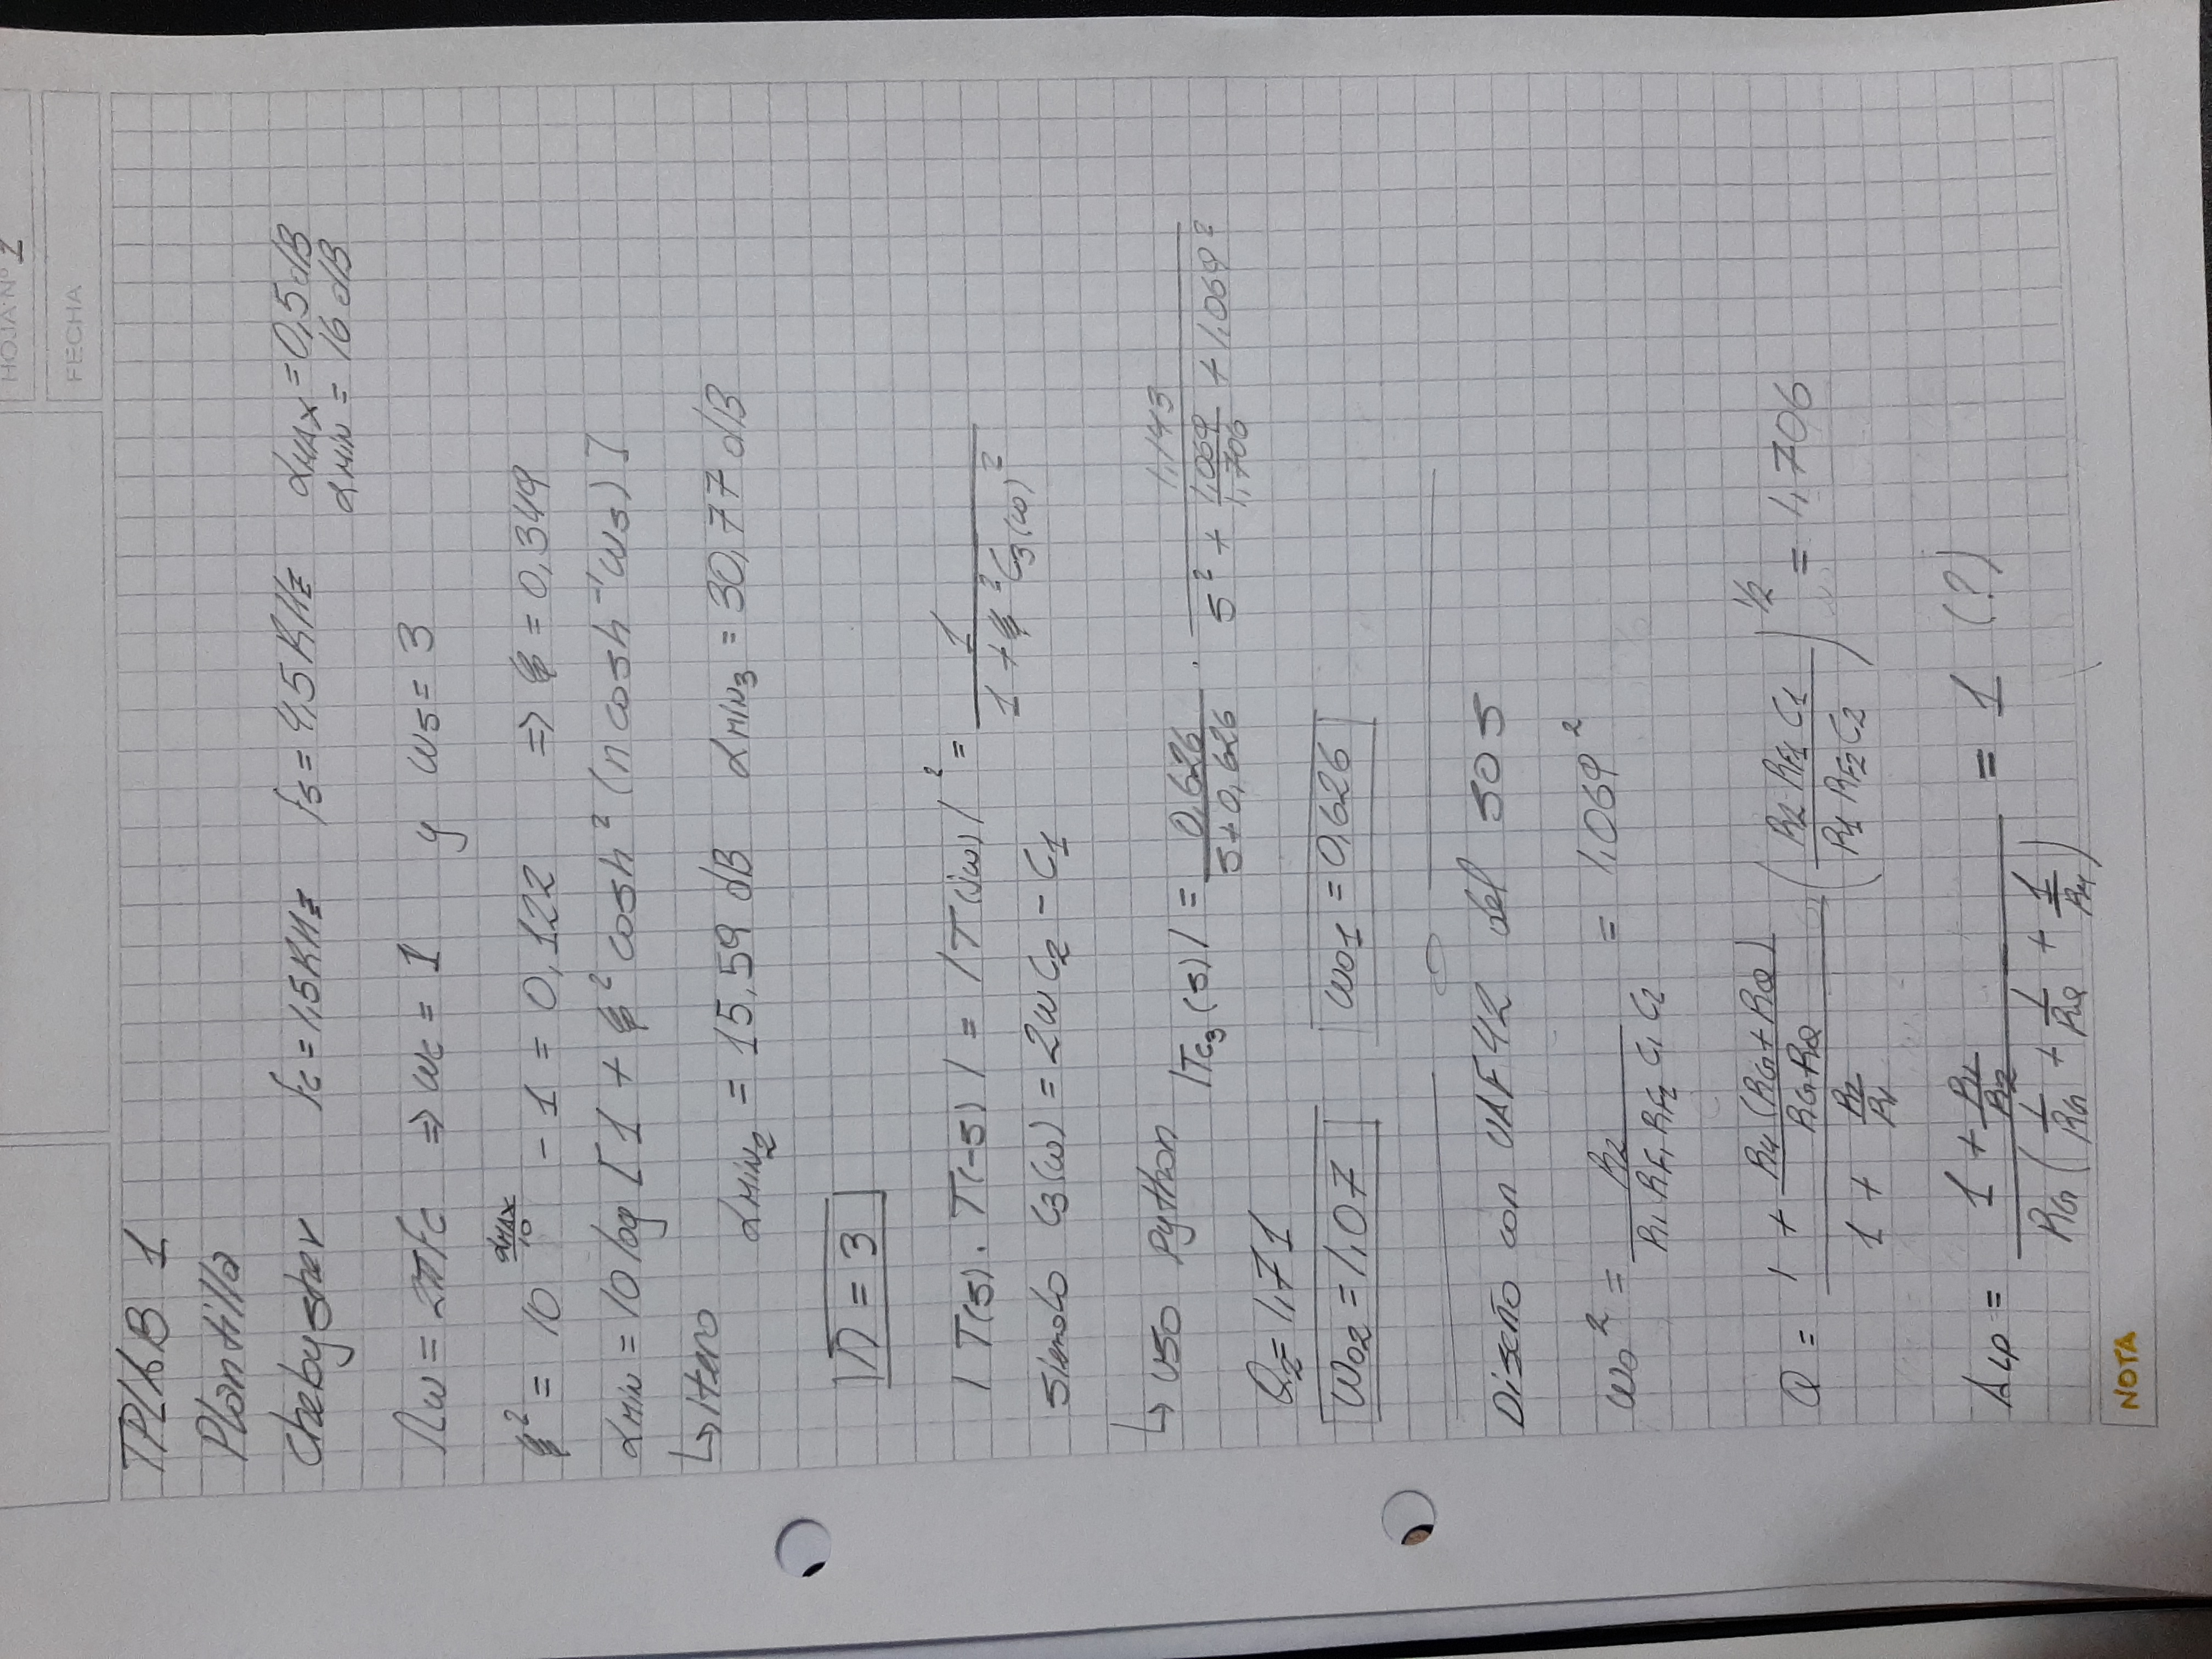 HOJA Nº 1
FECHA
TPLAB 1
Plantilla
Chebyshev fc = 1,5KHz fs = 4,5KHz αMAX = 0,5dB
αMIN = 16 dB
Ωω = 2πfc ⇒ ωc = 1 y ωs = 3
ξ² = 10^(αMAX/10) - 1 = 0,122 ⇒ ξ = 0,349
αMIN = 10 log [1 + ξ² cosh² (n cosh⁻¹ ωs)]
↳ Itero
αMIN₂ = 15,59 dB αMIN₃ = 30,77 dB
n = 3
|T(s) . T(-s)| = |T(jω)|² = 1 / (1 + ξ² C₃(ω)²)
siendo C₃(ω) = 2ω C₂ - C₁
↳ uso python |Tc₃(s)| = 0,626 / (s + 0,626) . 1,143 / (s² + 1,069/1,706 + 1,069²)
Q₂ = 1,71
ω02 = 1,07 ω01 = 0,626
Diseño con UAF42 del SOS
ω0² = R2 / (R1 RF1 RF2 C1 C2) = 1,069²
Q = (1 + R4 (RG + RQ) / (RG RQ)) / (1 + R2/R1) (R2 RF1 C1 / (R1 RF2 C2))^1/2 = 1,706
ALP = (1 + R1/R2) / (RG (1/RG + 1/RQ + 1/R4)) = 1 (?)
NOTA